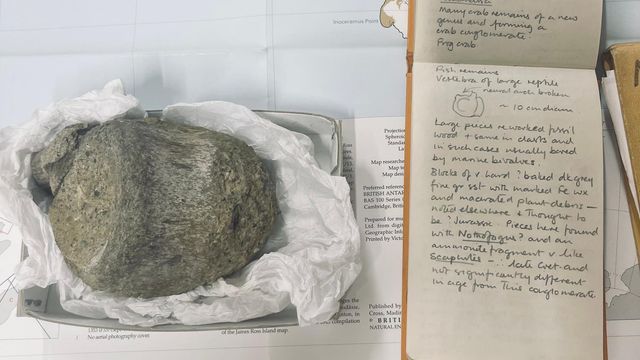 Inoceramus Point
Many crab remains of a new
genus and forming a
crab conglomerate
Frog crab
Fish remains
Vertebra of large reptile
neural arch broken
~ 10 cm diam
Large pieces reworked fossil
wood + same in clasts and
in such cases usually bored
by marine bivalves.
Blocks of v hard ? baked dk grey
fine gr sst with marked Fe wx
and macerated plant debris —
noted elsewhere & thought to
be ? Jurassic. Pieces here found
with Nothofagus? and an
ammonite fragment v like
Scaphites — ∴ late Cret and
not significantly different
in age from this conglomerate
Projection
Spheroid
Standard
Map researched
Map
Preferred reference
BRITISH ANTAR
BAS 100 Series
Cambridge, British
Prepared for
Ltd. from digital
Geographic Infor
Printed by Victo
Published by
Cross, Madin
BRIT
NATURAL EN
of the James Ross Island map.
No aerial photography cover.